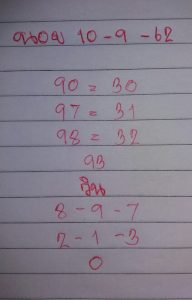 10-9-62
90 = 30
97 = 31
98 = 32
93
8-9-7
2-1-3
0